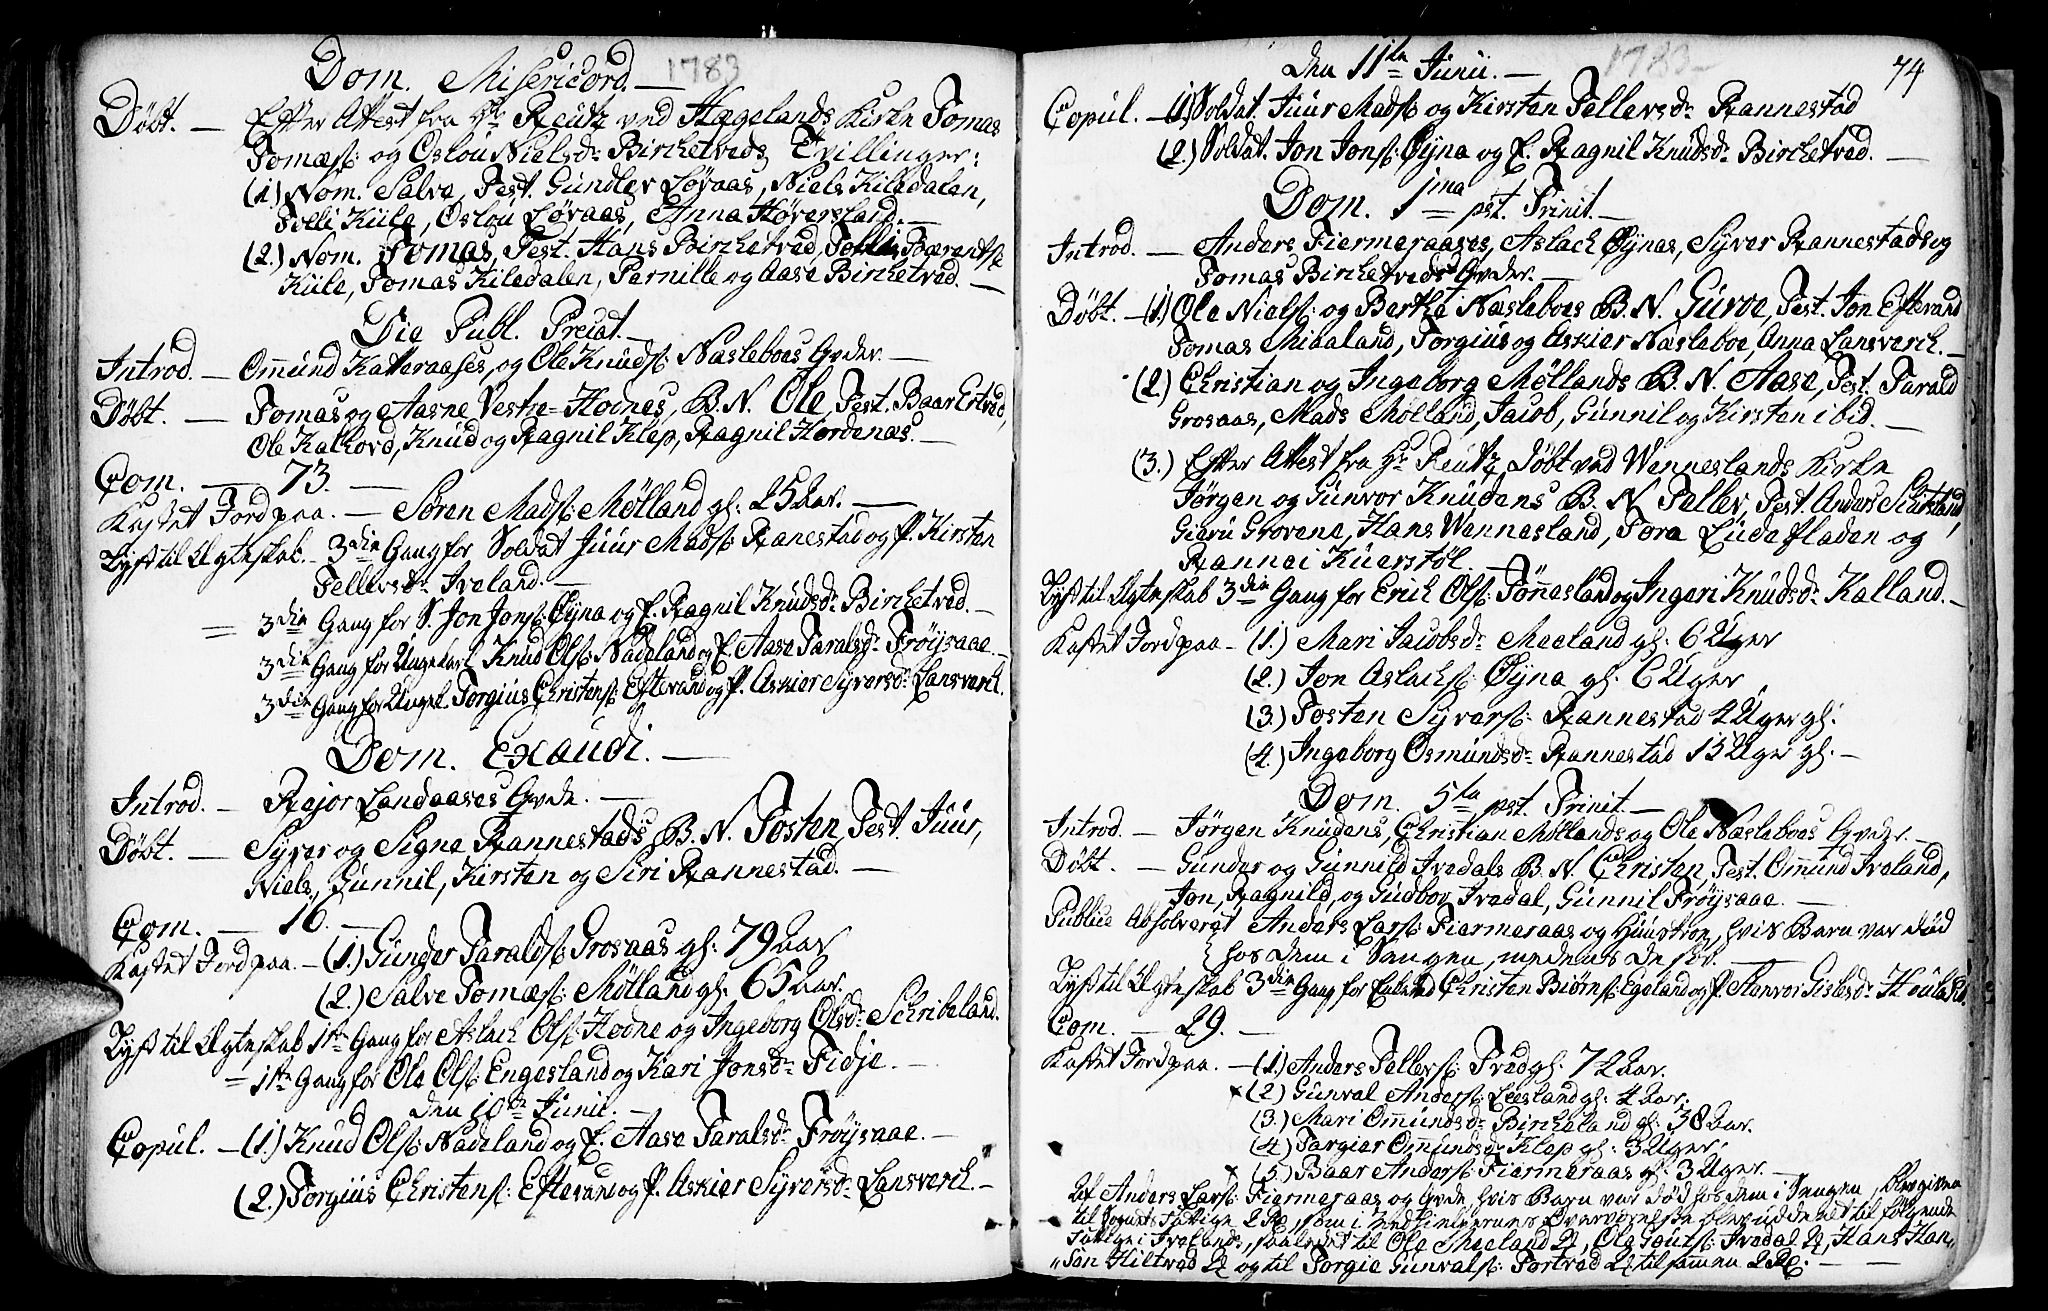 Dom. Misericord. — 1783
Døbt. — Efter Attest fra Hr Reutz ved Hægelands Kirke Tomas
Tomæs: og Oslou Nielsd: Birchetveds Tvillinger:
(1.) Nom. Salve, Test. Gundler Løvaas, Niels Kiledalen,
Tolli Kiile, Oslou Løvaas, Anna Høversland. —
(2.) Nom. Tomas, Test. Hans Birchetved, Tolli Bærentss:
Kiile, Tomas Kiledalen, Pernille og Aase Birchetved. —
Die Publ. Precat. —
Introd. — Omund Katteraases, og Ole Knuds: Næsleboes Qvder. —
Døbt. — Tomas og Aasne Vestre-Hodnes, B. N. Ole, Test. Baar Ertved,
Ole Kalhovd, Knud og Ragnil Klep, Ragnil Hordenæs. —
Com. — 73. —
Kastet Jord paa. — Søren Mads: Mølland gl: 25 Aar. —
Lyst til Ægteskab. — 3die Gang for Soldat Juur Mads: Ranestad og P. Kirsten
Tellevsdr Iveland. —
= 3die Gang for S. Jon Jons: Øyna og E. Ragnil Knudsdr Birchetved. —
3die Gang for Ungekarl Knud Ols: Nadeland og E. Aase Taralsdr Frøysaae. —
3die Gang for Ungek. Torgius Christens: Eftevand og P. Askier Syversdr Lansverk.
Dom. Exaudi. —
Introd. — Rejor Landaases Qvde. —
Døbt. — Syver og Signe Rannestads B. N. Tosten, Test. Juur,
Niels, Gunnil, Kirsten og Siri Rannestad. —
Com. — 16. —
Kastet Jord paa. — (1.) Gunder Taralds: Grosaas gl: 79 Aar
(2.) Salve Tomæs: Mølland gl: 65 Aar.
Lyst til Ægteskab 1ste Gang for Aslach Ols: Hodne og Ingeborg Olsdr Schribeland.
= 1ste Gang for Ole Ols: Engesland og Kari Jonsdr Fidje. —
den 10de Junii. —
Copul. — (1.) Knud Ols: Nadeland og E. Aase Taralsdr Frøysaae. —
(2.) Torgius Christens: Eftevand og P. Askier Syversdr Lansverch. —
den 11te Junii. — 1783 — 74
Copul. — (1.) Soldat. Juur Mads: og Kirsten Tellevsdr Rannestad
(2.) Soldat. Jon Jons: Øyna og E. Ragnil Knudsdr Birchetved. —
Dom. 1ma pst. Trinit. —
Introd. — Anders Fiermeraases, Aslach Øynas, Syver Rannestads og
Tomas Birchetveds Qvder. —
Døbt. — (1.) Ole Niels: og Berthe Næsleboes B. N. Guroe, Test. Jon Eftevand
Tomas Miaaland, Torgius og Askier Næsleboe, Anna Lansverch. —
(2.) Christian og Ingeborg Møllands B. N. Aase, Test. Tarald
Grosaas, Mads Mølland, Jacob, Gunnil og Kirsten ibid. —
(3.) Efter Attest fra Hr Reutz døbt ved Wenneslands Kirke
Jørgen og Gunvor Knudens B. N. Tellev, Test. Anders Skiesland,
Gieru Grovene, Hans Wennesland, Tora Ludefladen og
Rannei Kuerstøl. —
Lyst til Ægteskab 3die Gang for Erich Ols: Tønnesland og Ingeri Knudsdr Kalland. —
Kastet Jord paa — (1.) Mari Jacobsdr Meeland gl: 6 Uger
(2.) Jon Aslachs: Øyna gl: 6 Uger
(3.) Tosten Syvers: Rannestad 4 Uger gl:
(4.) Ingeborg Osmundsdr Rannestad 15 Uger gl: —
Dom. 5ta pst. Trinit. —
Introd. — Jørgen Knudens, Christian Møllands og Ole Næsleboes Qvder. —
Døbt. — Gunder og Gunnild Ivedals B. N. Christen, Test. Omund Iveland,
Jon, Ragnild, og Gudbor Ivedal, Gunnil Frøysaae. —
Publice Absolveret Anders Lars: Fiermeraas og Hustroe, hvis Barn var død
hos dem i Sengen, medens de sov. —
Lyst til Ægteskab 3die Gang for Christen Biørns: Egeland og P. Stenvor Gislesdr
Com. — 29. —
Kastet Jord paa. — (1.) Anders Tellevs: Tved gl: 72 Aar.
x (2) Gunval Anders: Leesland gl: 4 Aar.
(3.) Mari Omundsdr Bircheland gl: 38 Aar.
(4.) Targier Omundsdr Klep gl: 3 Uger.
x (5.) Baar Anders: Fiermeraas gl: 3 Uger. —
Af Anders Lars: Fiermeraas og Qvde, hvis Barn var død hos dem i Sengen, blev given
til Sognets Fattige 2 Rd, som i Medhielpernes Overværelse blev uddeelet til følgende
Fattige i Iveland, saaledes til Ole Meeland, Ole Ivedal, Hans Han-
"sen Hiltved og til Torgie Gunvals: Tortved tilsamen 2 Rd. —